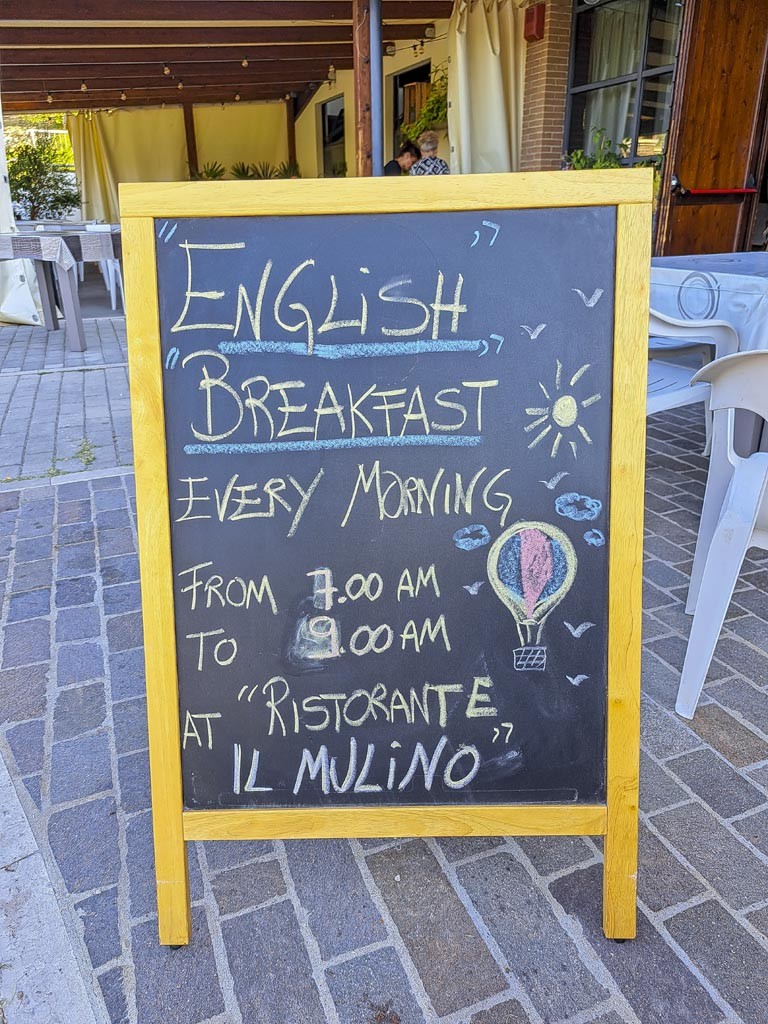 "ENGLISH"
"BREAKFAST"
EVERY MORNING
FROM 7.00 AM
TO 9.00 AM
AT "RISTORANTE
IL MULINO"